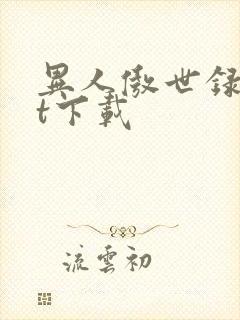 異人傲世録
t下載
流雲初